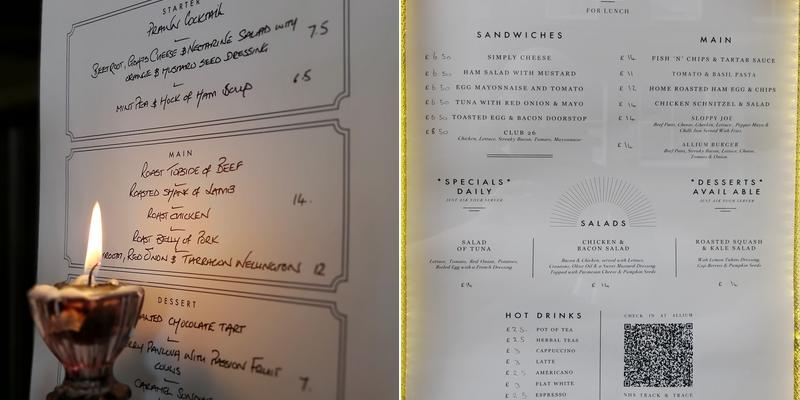 STARTER
PRAWN COCKTAIL
BEETROOT, GOATS CHEESE & NECTARINE SALAD WITH 7.5
ORANGE & MUSTARD SEED DRESSING
MINT PEA & HOCK OF HAM SOUP 6.5
MAIN
ROAST TOPSIDE OF BEEF
ROASTED SHANK OF LAMB
14.
ROAST CHICKEN
ROAST BELLY OF PORK
RED ONION & TARRAGON WELLINGTON 12
DESSERT
CHOCOLATE TART
PAVLOVA WITH PASSION FRUIT
7.
CARAMEL
FOR LUNCH
SANDWICHES
£6.50 SIMPLY CHEESE
£6.50 HAM SALAD WITH MUSTARD
£6.50 EGG MAYONNAISE AND TOMATO
£6.50 TUNA WITH RED ONION & MAYO
£6.50 TOASTED EGG & BACON DOORSTEP
£8.50 CLUB 26
Chicken, Lettuce, Streaky Bacon, Tomato, Mayonnaise
MAIN
£14 FISH 'N' CHIPS & TARTAR SAUCE
£11 TOMATO & BASIL PASTA
£12 HOME ROASTED HAM EGG & CHIPS
£14 CHICKEN SCHNITZEL & SALAD
£14 SLOPPY JOE
Beef Patty, Cheese, Gherkin, Lettuce, Pepper Mayo &
Chilli Jam Served With Fries
£14 ALLIUM BURGER
Beef Patty, Streaky Bacon, Lettuce, Cheese,
Tomato & Onion
*SPECIALS*
DAILY
JUST ASK YOUR SERVER
*DESSERTS*
AVAILABLE
JUST ASK YOUR SERVER
SALADS
SALAD
OF TUNA
Lettuce, Tomato, Red Onion, Potatoes,
Boiled Egg with a French Dressing
£14
CHICKEN &
BACON SALAD
Bacon & Chicken, served with Lettuce,
Croutons, Olive Oil & a Sweet Mustard Dressing
Topped with Parmesan Cheese & Pumpkin Seeds
£14
ROASTED SQUASH
& KALE SALAD
With Lemon Tahini Dressing,
Goji Berries & Pumpkin Seeds
£14
HOT DRINKS
£2.5 POT OF TEA
£2.5 HERBAL TEAS
£3 CAPPUCCINO
£3 LATTE
£2.5 AMERICANO
£3 FLAT WHITE
£2.5 ESPRESSO
CHECK IN AT ALLIUM
NHS TRACK & TRACE